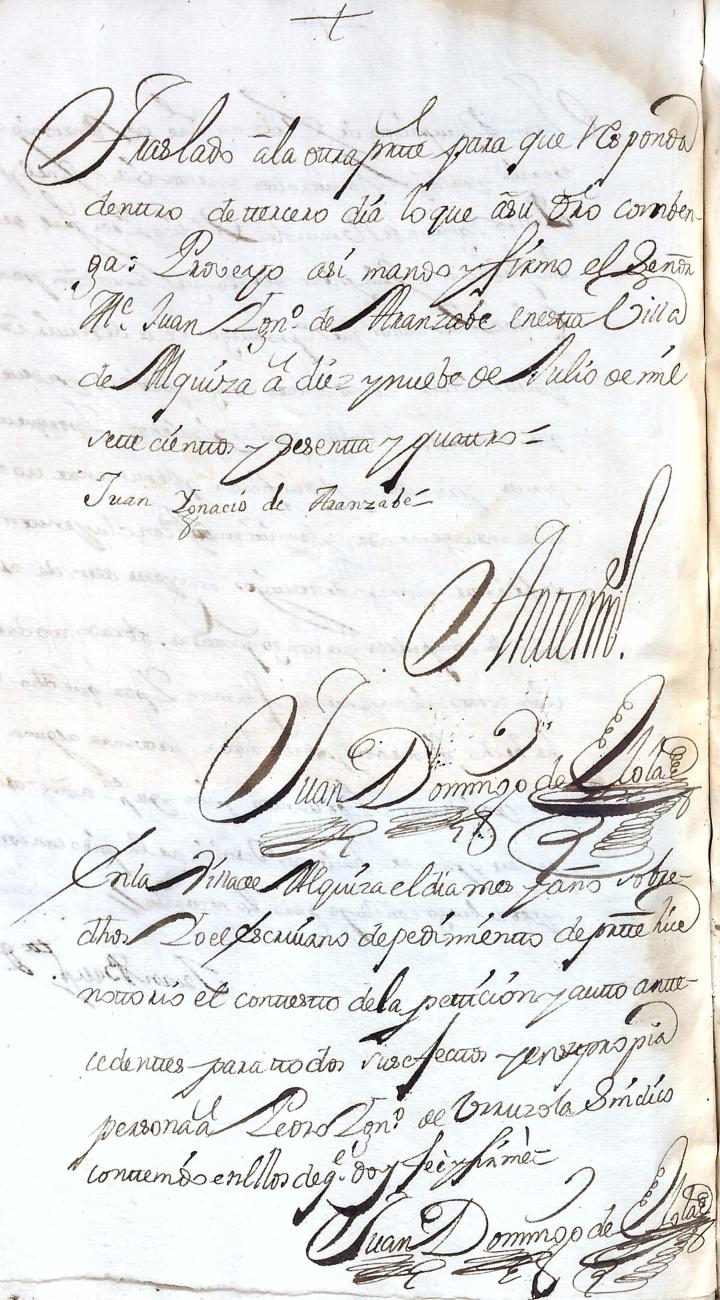 Traslado a la otra prtte para que rresponda
dentro de tercero dia lo que a su dro comben-
ga: Proveyo asi mando y firmo el Señor
Alce Juan Ygno de Aranzabe en esta Villa
de Alquiza a diez y nuebe de Julio de mil
sette cientos y sesentta y quattro=
Juan Ygnacio de Aranzabe=
Antemi.
Juan Domingo de Olola
En la Villa de Alquiza el dia mes y año sobre-
dhos Yo el escrivano de pedimientto de prtte hice
nottorio el contestto de la petticion y autto antte-
cedenttes para ttodos sus efecttos y en su propia
persona a Pedro Ygno de Urruzola Sindico
contenido en ellos de qe doy fee y firme=
Juan Domingo de Olola